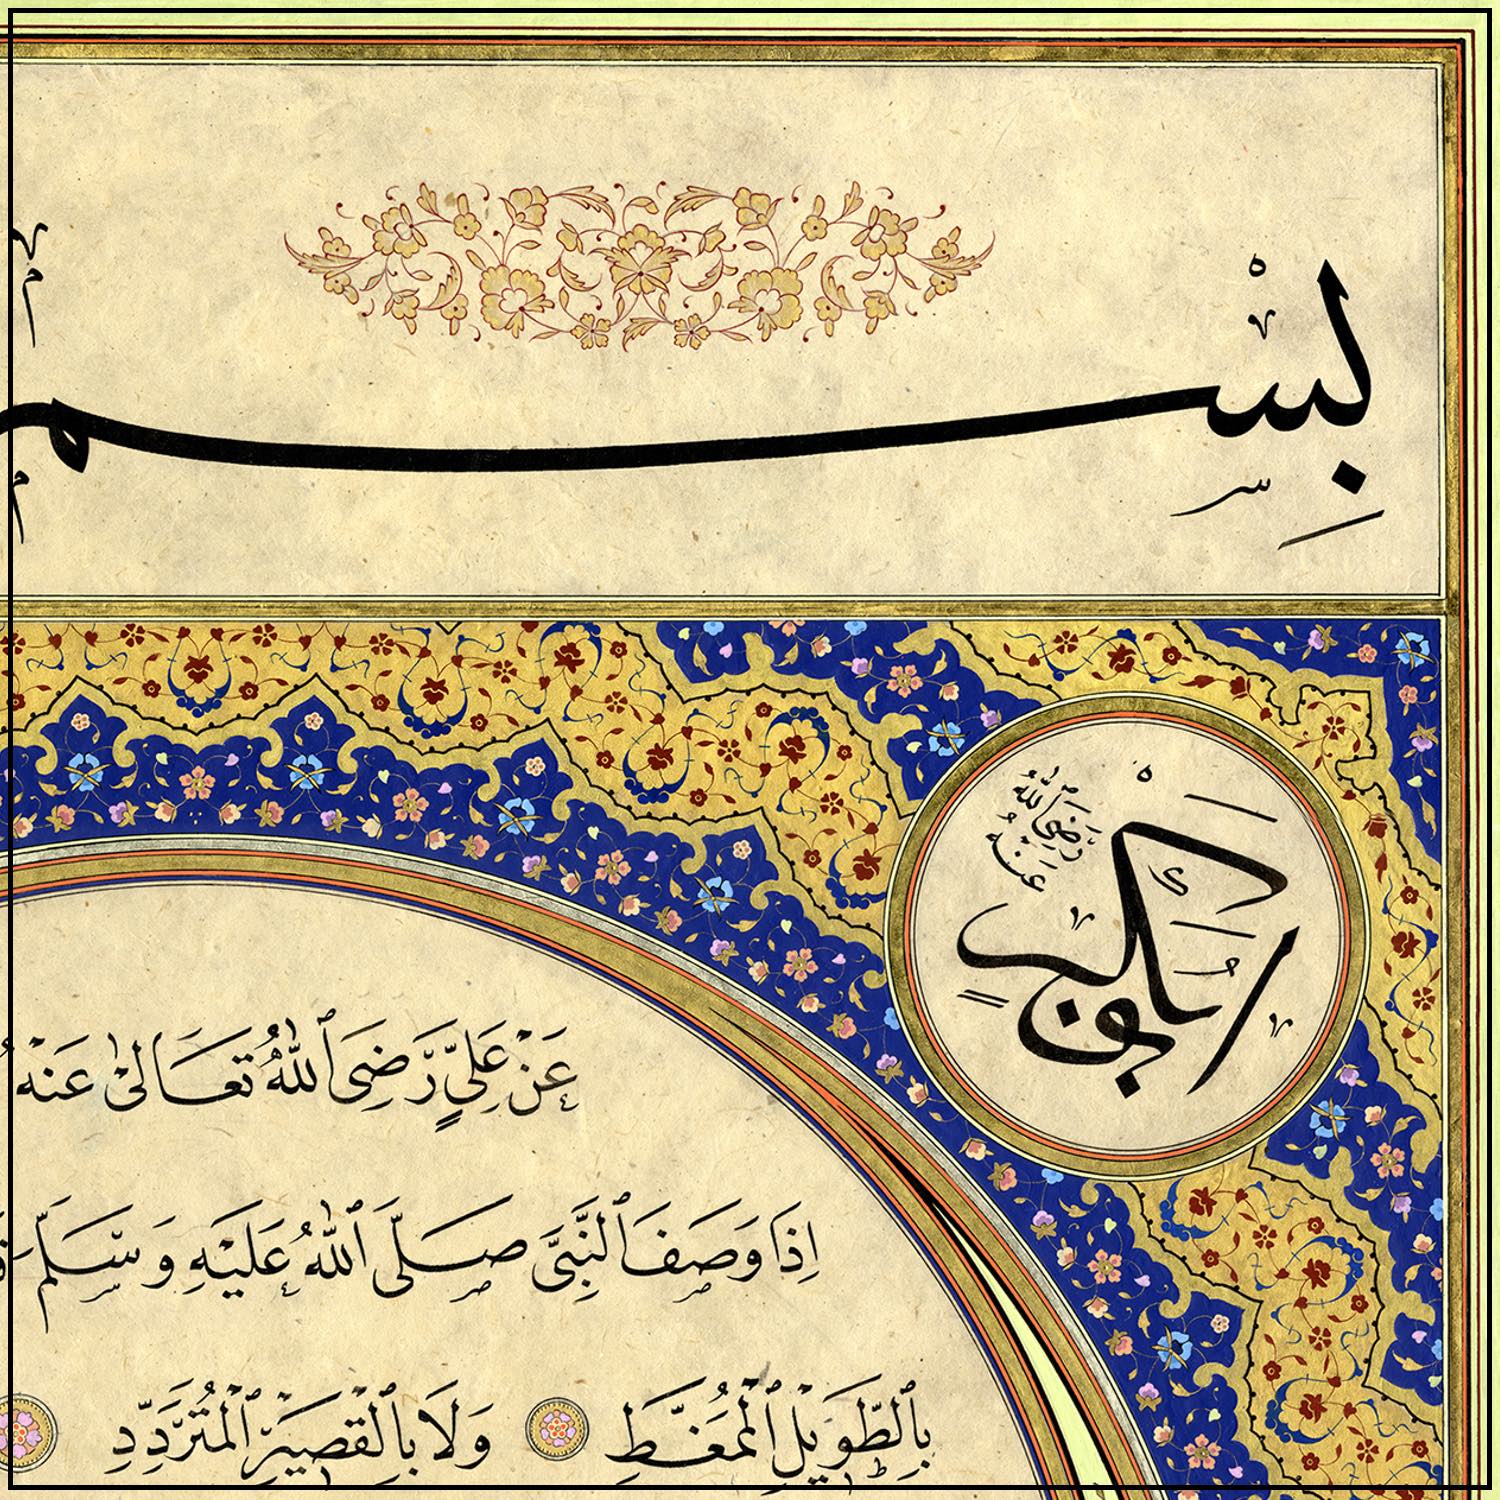 بِسْمِ
اَبُو بَكْرٍ
رَضِيَ ٱللّٰهُ عَنْهُ
عَنْ عَلِيٍّ رَّضِيَ ٱللّٰهُ تَعَالٰى عَنْهُ
اِذَا وَصَفَ ٱلنَّبِيَّ صَلَّى ٱللّٰهُ عَلَيْهِ وَسَلَّمَ
بِٱلطَّوِيلِ ٱلْمُمَغَّطِ وَلَا بِٱلْقَصِيرِ ٱلْمُتَرَدِّدِ